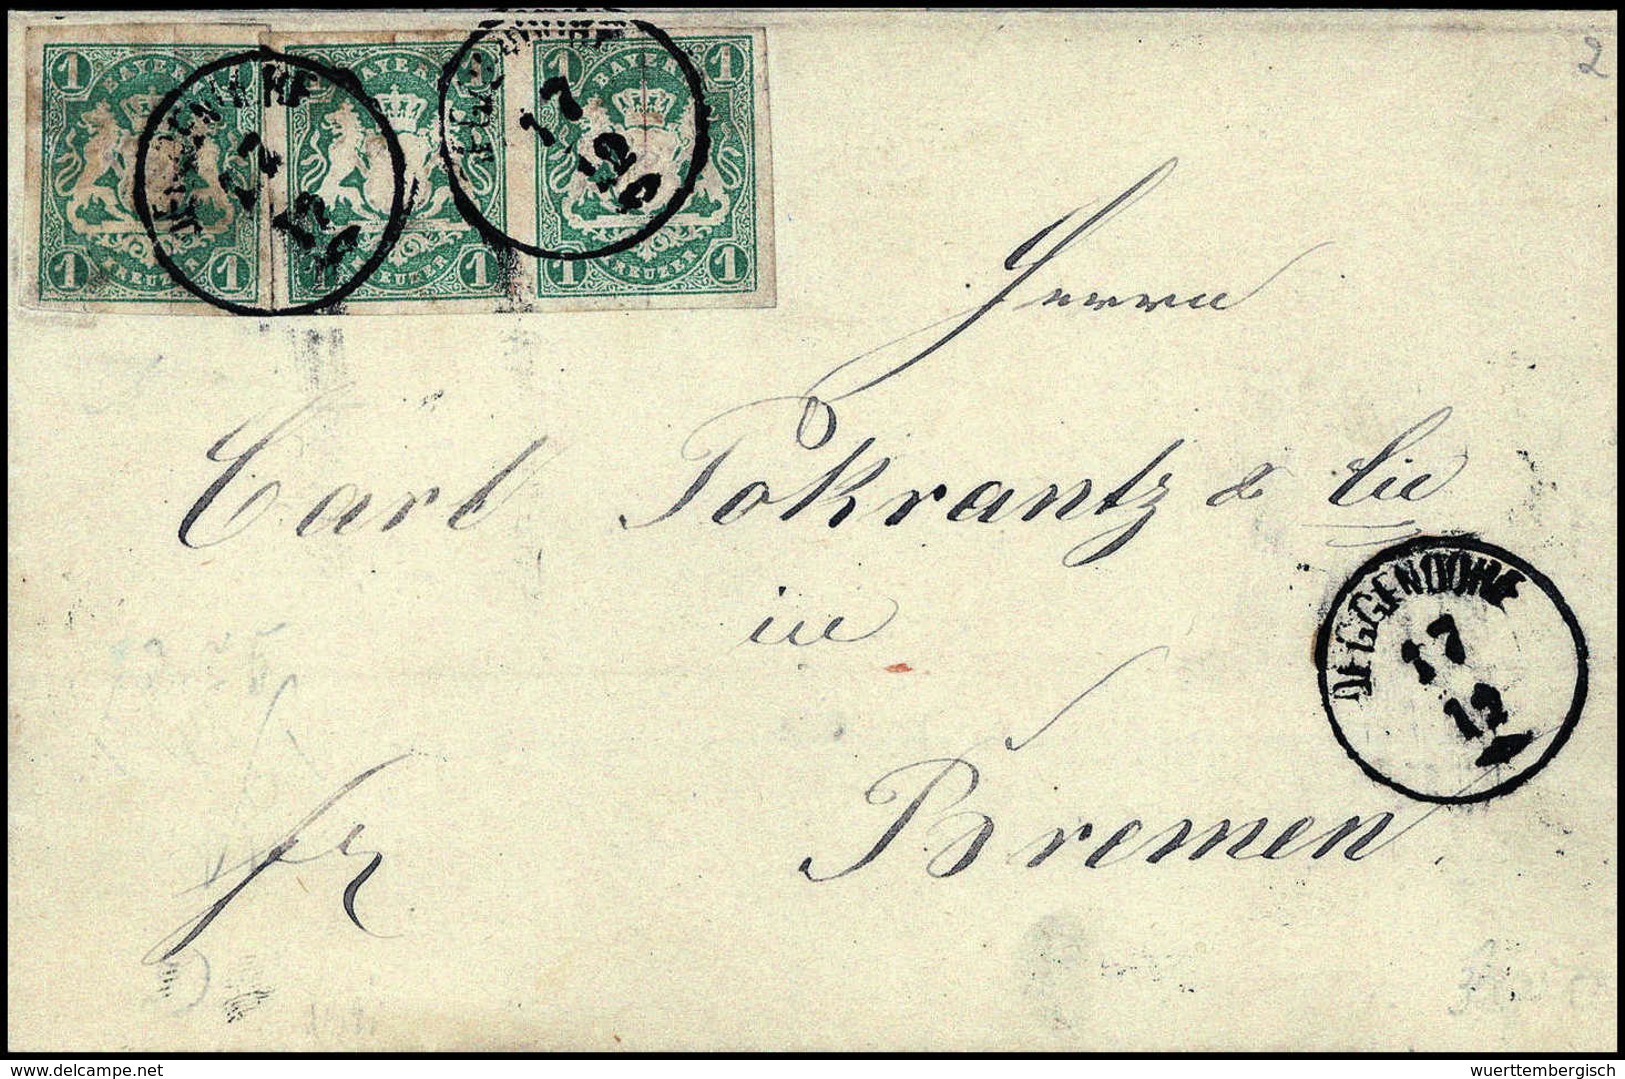 2
1 1 1 1
BAYERN BAYERN BAYERN
DEGGENDORF
17
12
DEGGENDORF
17
12
1 1 1 1 1
KREUZER KREUZER KREUZER
Herrn
Carl Tokrantz & Cie
in
DEGGENDORF
17
12
Bremen
fr
wuerttembergisch